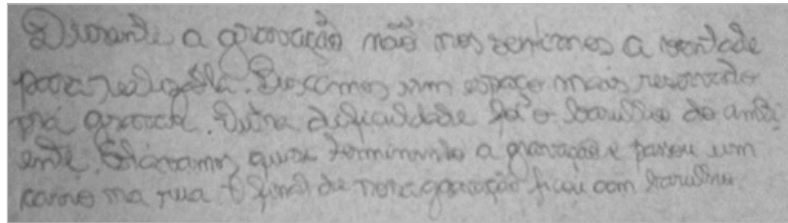 Durante a gravação não nos sentimos a vontade
para realizá-la. Buscamos um espaço mais reservado
prá gravar. Outra dificuldade foi o barulho do ambi
ente. Estávamos quase terminando a gravação e passou um
carro na rua. O final de nossa gravação ficou com barulho